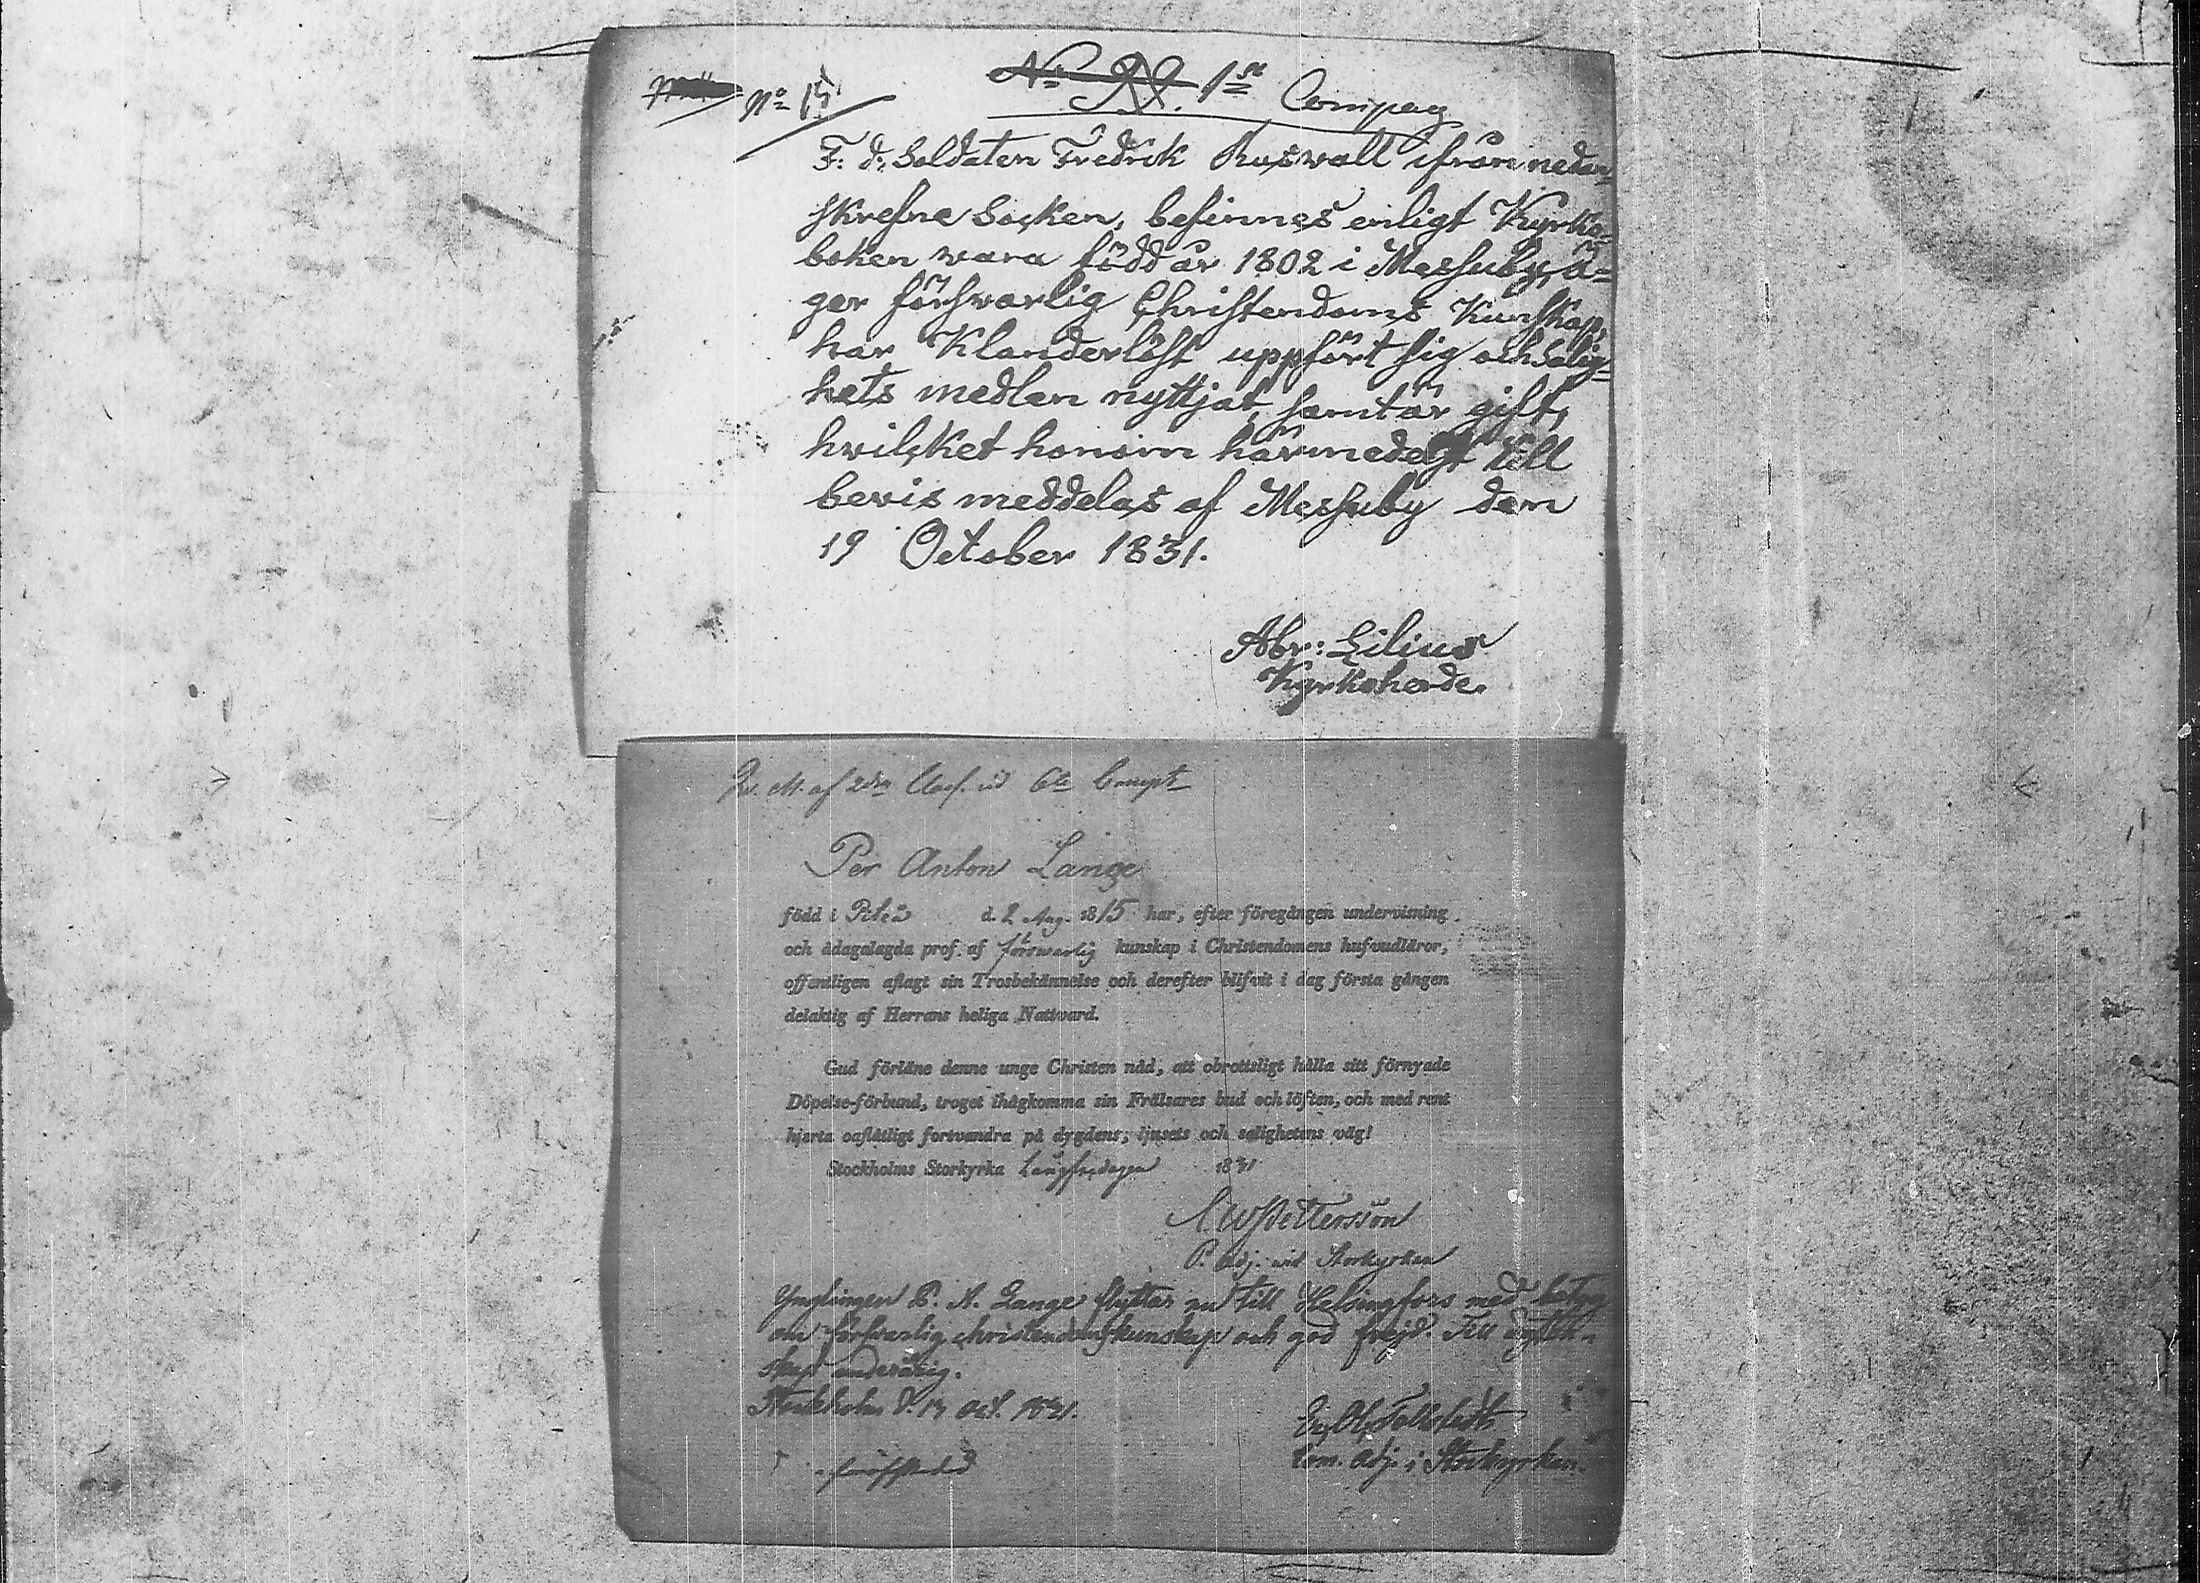 No 15
No 99. 1sta Compag
F: d: Soldaten Fredrik Roswall ifrån nedan-
skrefne Socken, befinnes enligt Kyrko-
boken wara född år 1802 i Messuby, ä-
ger förswarlig Christendoms Kunskap,
har Klanderlöst uppfört sig och Salig-
hets medlen nyttjat, samt är gift,
hwilcket honom härmedelst till
bevis meddelas af Messuby dem
19 October 1831.
Abr: Lilius
Kyrkoherde.
af 2dra Clas. vid 6te Compt
Per Anton Lange
född i Piteå d. 2 Aug. 1815 har, efter föregången undervisning
och ådagalagda prof. af förswarlig kunskap i Christendomens hufvudläror,
offentligen aflagt sin Trosbekännelse och derefter blifvit i dag första gången
delaktig af Herrans heliga Nattvard.
Gud förläne denne unge Christen nåd, att obrottsligt hålla sitt förnyade
Döpelse-förbund, troget ihågkomma sin Frälsares bud och löften, och med rent
hjerta oaflåtligt fortvandra på dygdens, ljusets och salighetens väg!
Stockholms Storkyrka Långfredagen 1831
Pettersson
P. Adj. vid Storkyrkan
Ynglingen P. A. Lange flyttar nu till Helsingfors med betyg
om förswarlig christendomskunskap och god frejd. Till
Stockholm d. 13 Oct. 1831.
Com. Adj. i Storkyrkan.